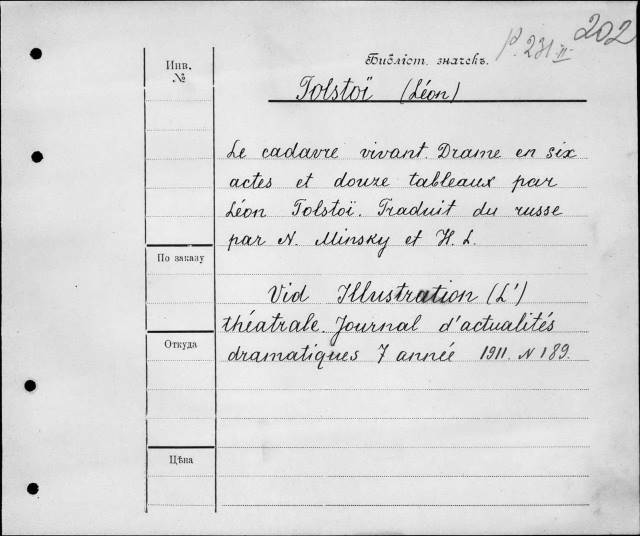 202
P. 231 II
Инв. №
Библіот. значекъ.
Tolstoï (Léon)
Le cadavre vivant. Drame en six
actes et douze tableaux par
Léon Tolstoï. Traduit du russe
par N. Minsky et H. L.
По заказу
Vid Illustration (L')
théatrale. Journal d'actualités
Откуда
dramatiques 7 année 1911. N 189.
Цѣна